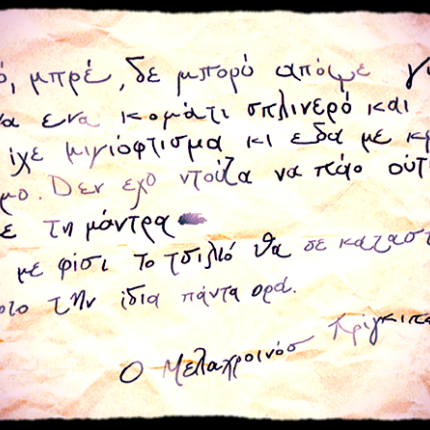 ό, μπρέ, δε μπορύ απόψε γι
να ενα κομάτι σπλινερό και
ίχε μιγιόφτισμα κι εδα με κρ
μο. Δεν εχο ντούζα να πάο ούτ
ε τη μάντρα
με φίσι το τσιλιό θα σε καταστ
την ίδια πάντα ορά.
Ο Μελαχροινόσ Πρίγκιπα